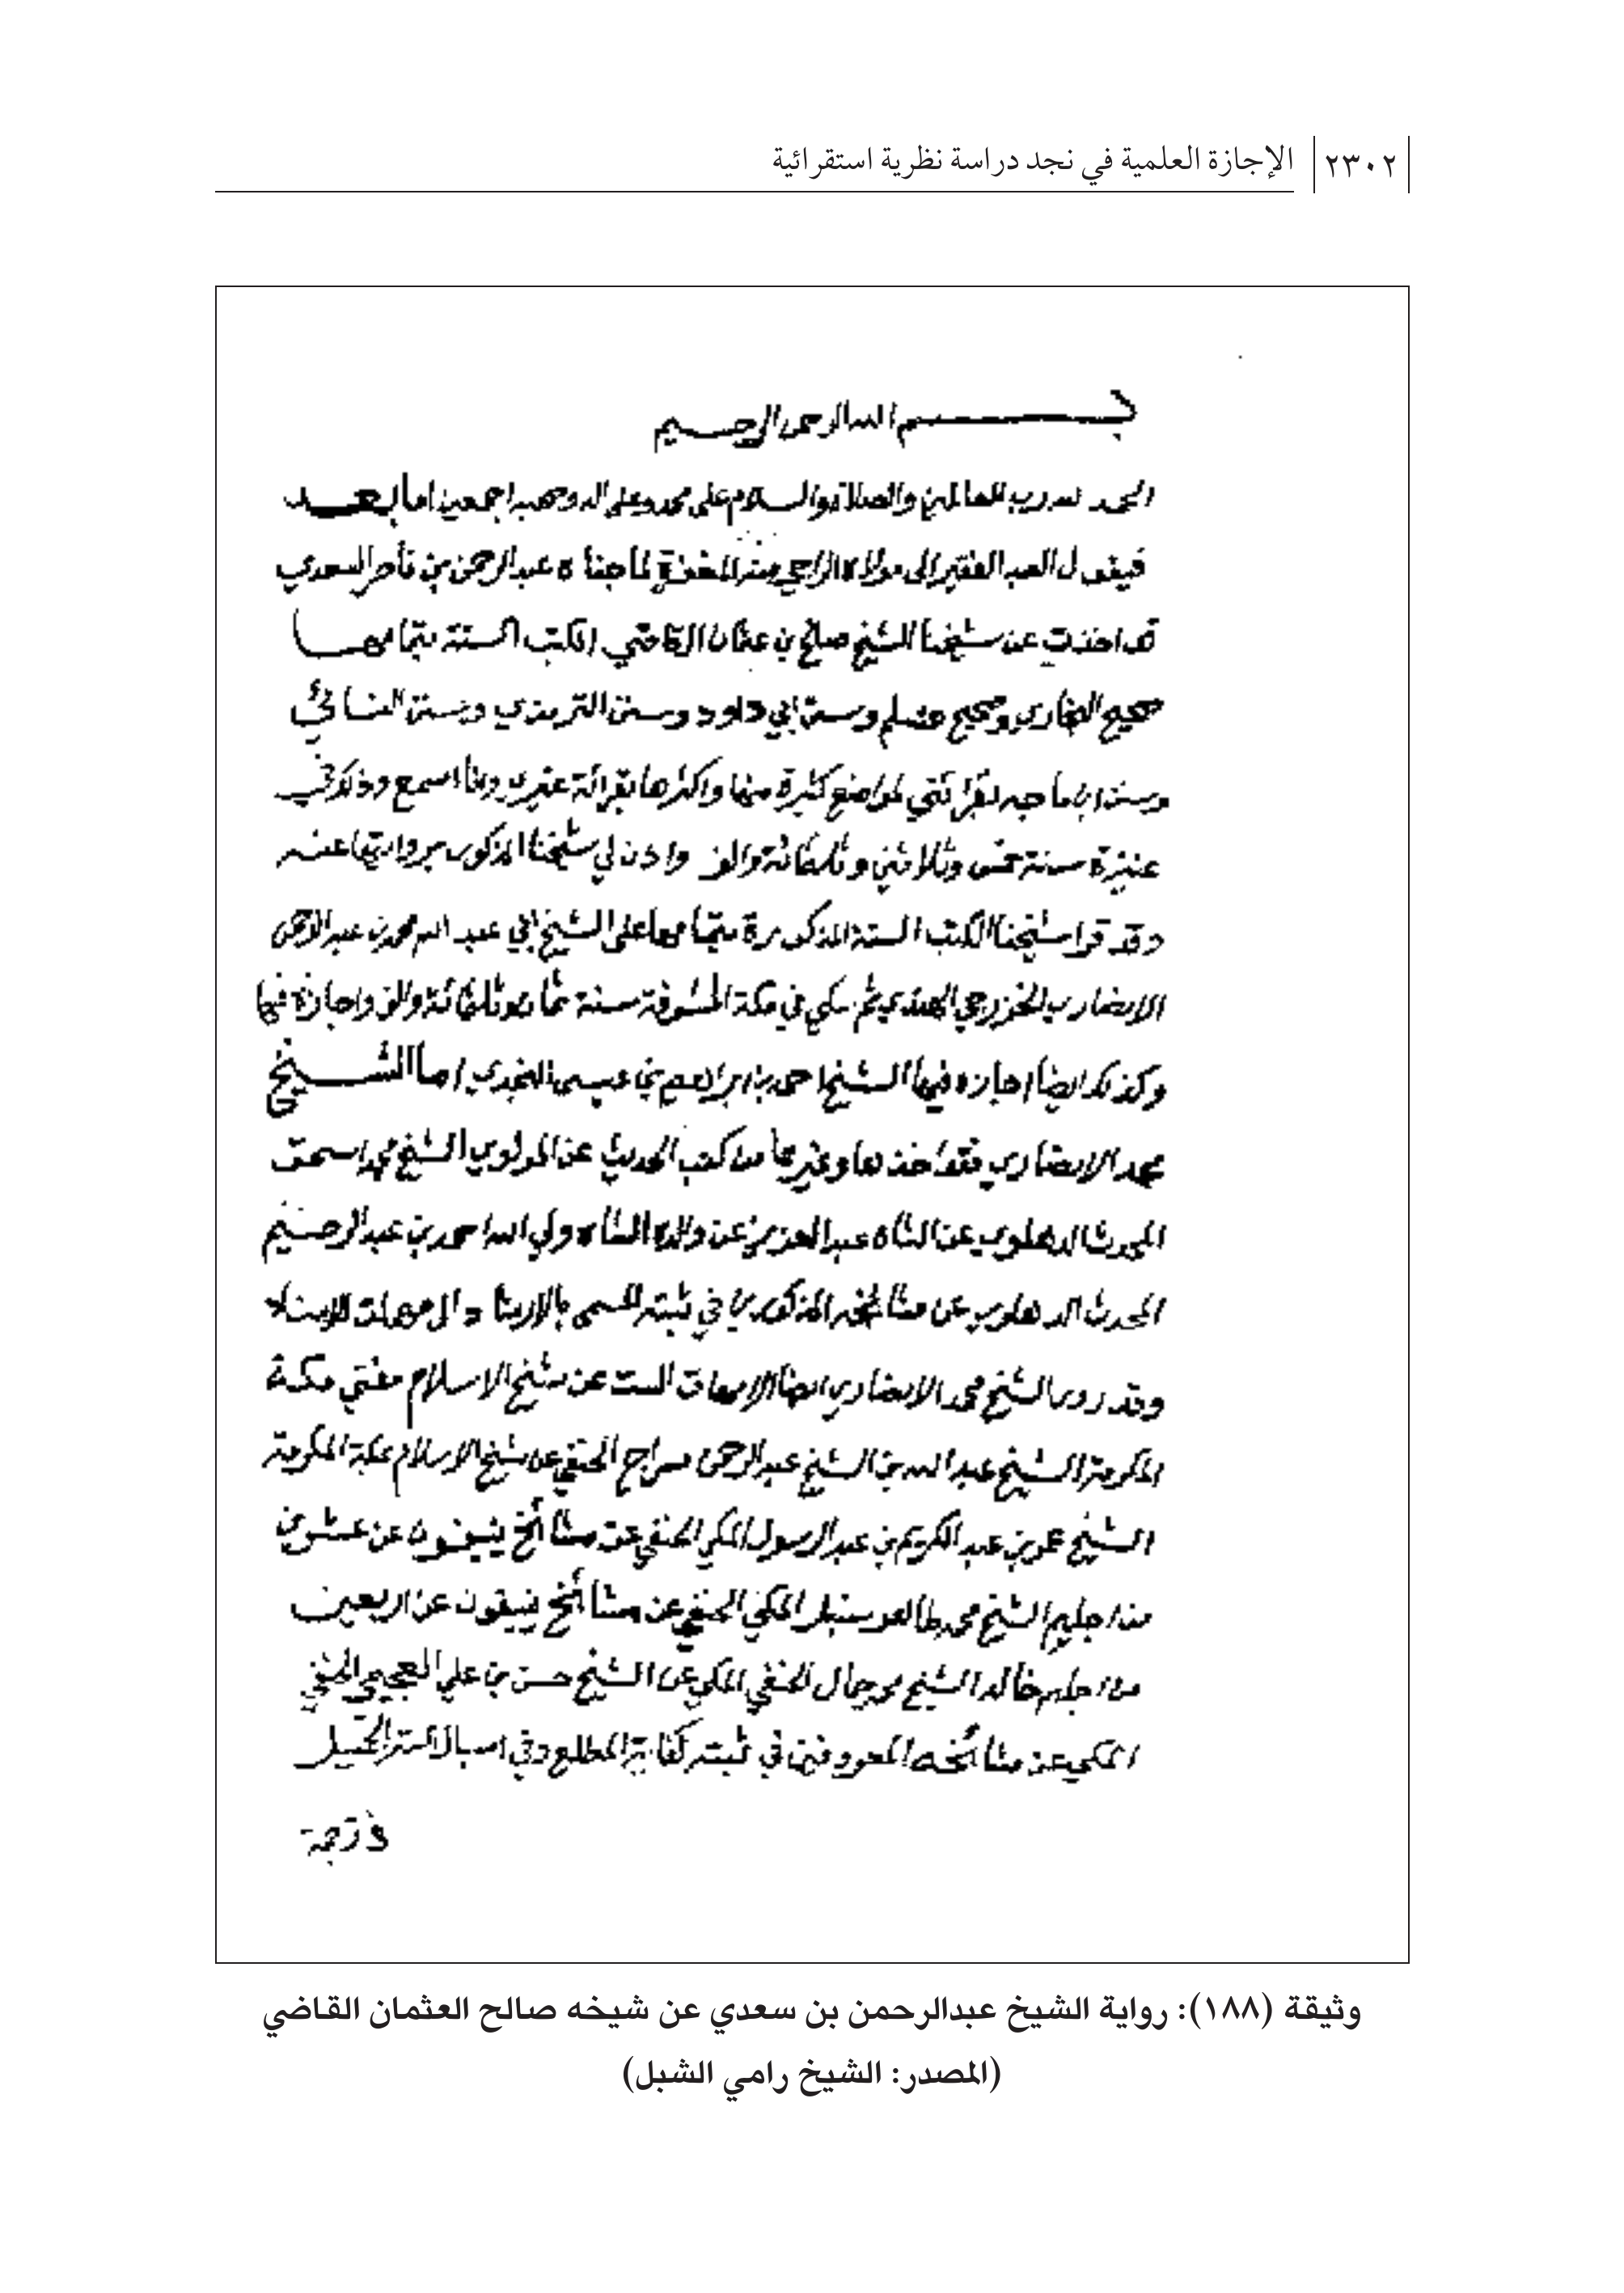 ٢٣٠٢ الإجازة العلمية في نجد دراسة نظرية استقرائية
بسم الله الرحمن الرحيم
الحمد لله رب العالمين والصلاة والسلام على محمد وعلى اله وصحبه اجمعين اما بعد
فيقول العبد الفقير الى مولاه الراجي منه المغفرة لما جناه عبد الرحمن بن ناصر السعدي
قد اخذت عن شيخنا الشيخ صالح بن عثمان القاضي الكتب الستة بتمامها
صحيح البخاري وصحيح مسلم وسنن ابي داود وسنن الترمذي وسنن النسائي
وسنن ابن ماجه بقرائتي لمواضع كثيرة منها واكثرها بقرائة غيري وانا اسمع وذلك في
عنيزة سنة خمس وثلاثين وثلثمائة والف واذن لي شيخنا المذكور بروايتها عنه
وقد قرا شيخنا الكتب الستة المذكورة بتمامها على الشيخ ابي عبد الله محمد بن عبد الرحمن
الانصاري الخزرجي الهندي ثم المكي في مكة المشرفة سنة ثمان وثلثمائة والف واجازه فيها
وكذلك ايضا اجازه فيها الشيخ احمد بن ابراهيم بن عيسى النجدي اما الشيخ
محمد الانصاري فقد اخذها وغيرها من كتب الحديث عن المولوي الشيخ محمد اسحق
المحدث الدهلوي عن الشاه عبد العزيز عن والده الشاه ولي الله احمد بن عبد الرحيم
المحدث الدهلوي عن مشائخه المذكورين في ثبته المسمى بالارشاد الى مهمات الاسناد
وقد روى الشيخ محمد الانصاري ايضا الامهات الست عن شيخ الاسلام مفتي مكة
المكرمة الشيخ عبد الله بن الشيخ عبد الرحمن سراج الحنفي عن شيخ الاسلام بمكة المكرمة
الشيخ عمر بن عبد الكريم بن عبد الرسول المكي الحنفي عن مشائخ ينيفون عن عشرين
من اجلهم الشيخ محمد طاهر سنبل المكي الحنفي عن مشائخ ينيفون عن اربعين
من اجلهم خاله الشيخ محمد جمال الحنفي المكي عن الشيخ حسن بن علي العجيمي الحنفي
المكي عن مشائخه المعروفين في ثبته كفاية المطلع وفي اسبال الستر الجميل
ترجمة
وثيقة (١٨٨): رواية الشيخ عبدالرحمن بن سعدي عن شيخه صالح العثمان القاضي
(المصدر: الشيخ رامي الشبل)